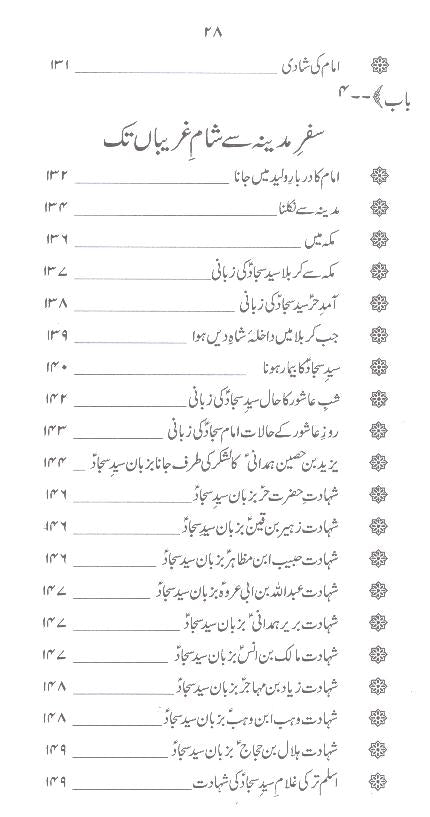 ۲۸
امام کی شادی ۱۳۱
باب﴾--۴
سفرِ مدینہ سے شامِ غریباں تک
امام کا دربارِ ولید میں جانا ۱۳۲
مدینہ سے نکلنا ۱۳۴
مکہ میں ۱۳۶
مکہ سے کربلا سید سجادؑ کی زبانی ۱۳۷
آمدِ حرؑ سید سجادؑ کی زبانی ۱۳۸
جب کربلا میں داخلۂ شاہِ دیں ہوا ۱۳۹
سیدِ سجادؑ کا بیمار ہونا ۱۴۰
شبِ عاشور کا حال سیدِ سجادؑ کی زبانی ۱۴۲
روزِ عاشور کے حالات امام سجادؑ کی زبانی ۱۴۳
یزید بن حصین ہمدانیؑ کا لشکر کی طرف جانا بزبان سیدِ سجادؑ ۱۴۴
شہادتِ حضرت حرؑ بزبان سیدِ سجادؑ ۱۴۶
شہادت زہیر بن قینؑ بزبان سیدِ سجادؑ ۱۴۶
شہادت حبیب ابن مظاہرؑ بزبان سید سجادؑ ۱۴۶
شہادت عبداللہ بن ابی عروہؑ بزبان سید سجادؑ ۱۴۷
شہادت بریر ہمدانیؑ بزبان سید سجادؑ ۱۴۷
شہادت مالک بن انسؑ بزبان سید سجادؑ ۱۴۷
شہادت زیاد بن مہاجرؑ بزبان سید سجادؑ ۱۴۸
شہادت وہب ابن وہبؑ بزبان سید سجادؑ ۱۴۸
شہادت ہلال بن حجاجؑ بزبان سید سجادؑ ۱۴۹
اسلم ترکی غلامِ سیدِ سجادؑ کی شہادت ۱۴۹